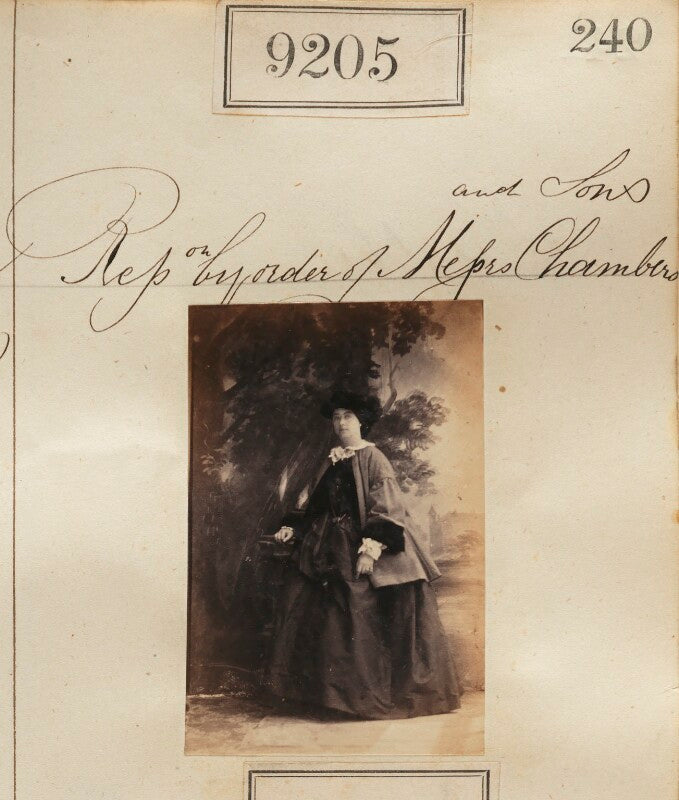 9205
240
and Sons
Repon by order of Messrs Chambers